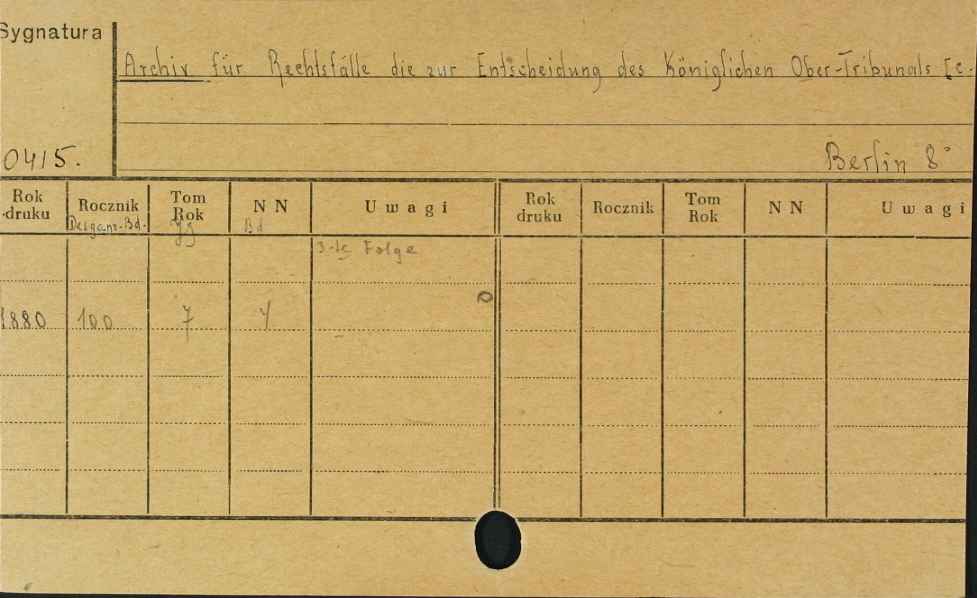 Sygnatura
Archiv für Rechtsfälle die zur Entscheidung des Königlichen Ober-Tribunals [c.
0415.
Berlin 8°
Rok druku Rocznik Tom Rok N N Uwagi Rok druku Rocznik Tom Rok N N Uwagi
Jg Bd
3-te Folge
1880 100 7 4